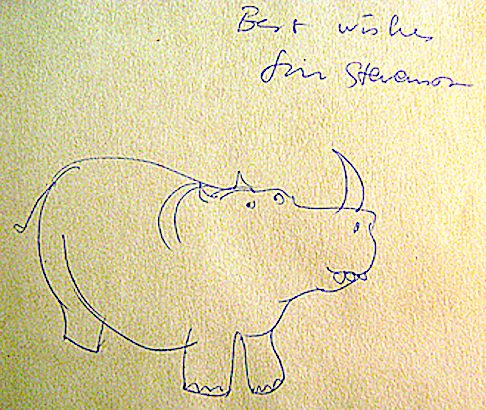 Best wishes
Jim Stevenson